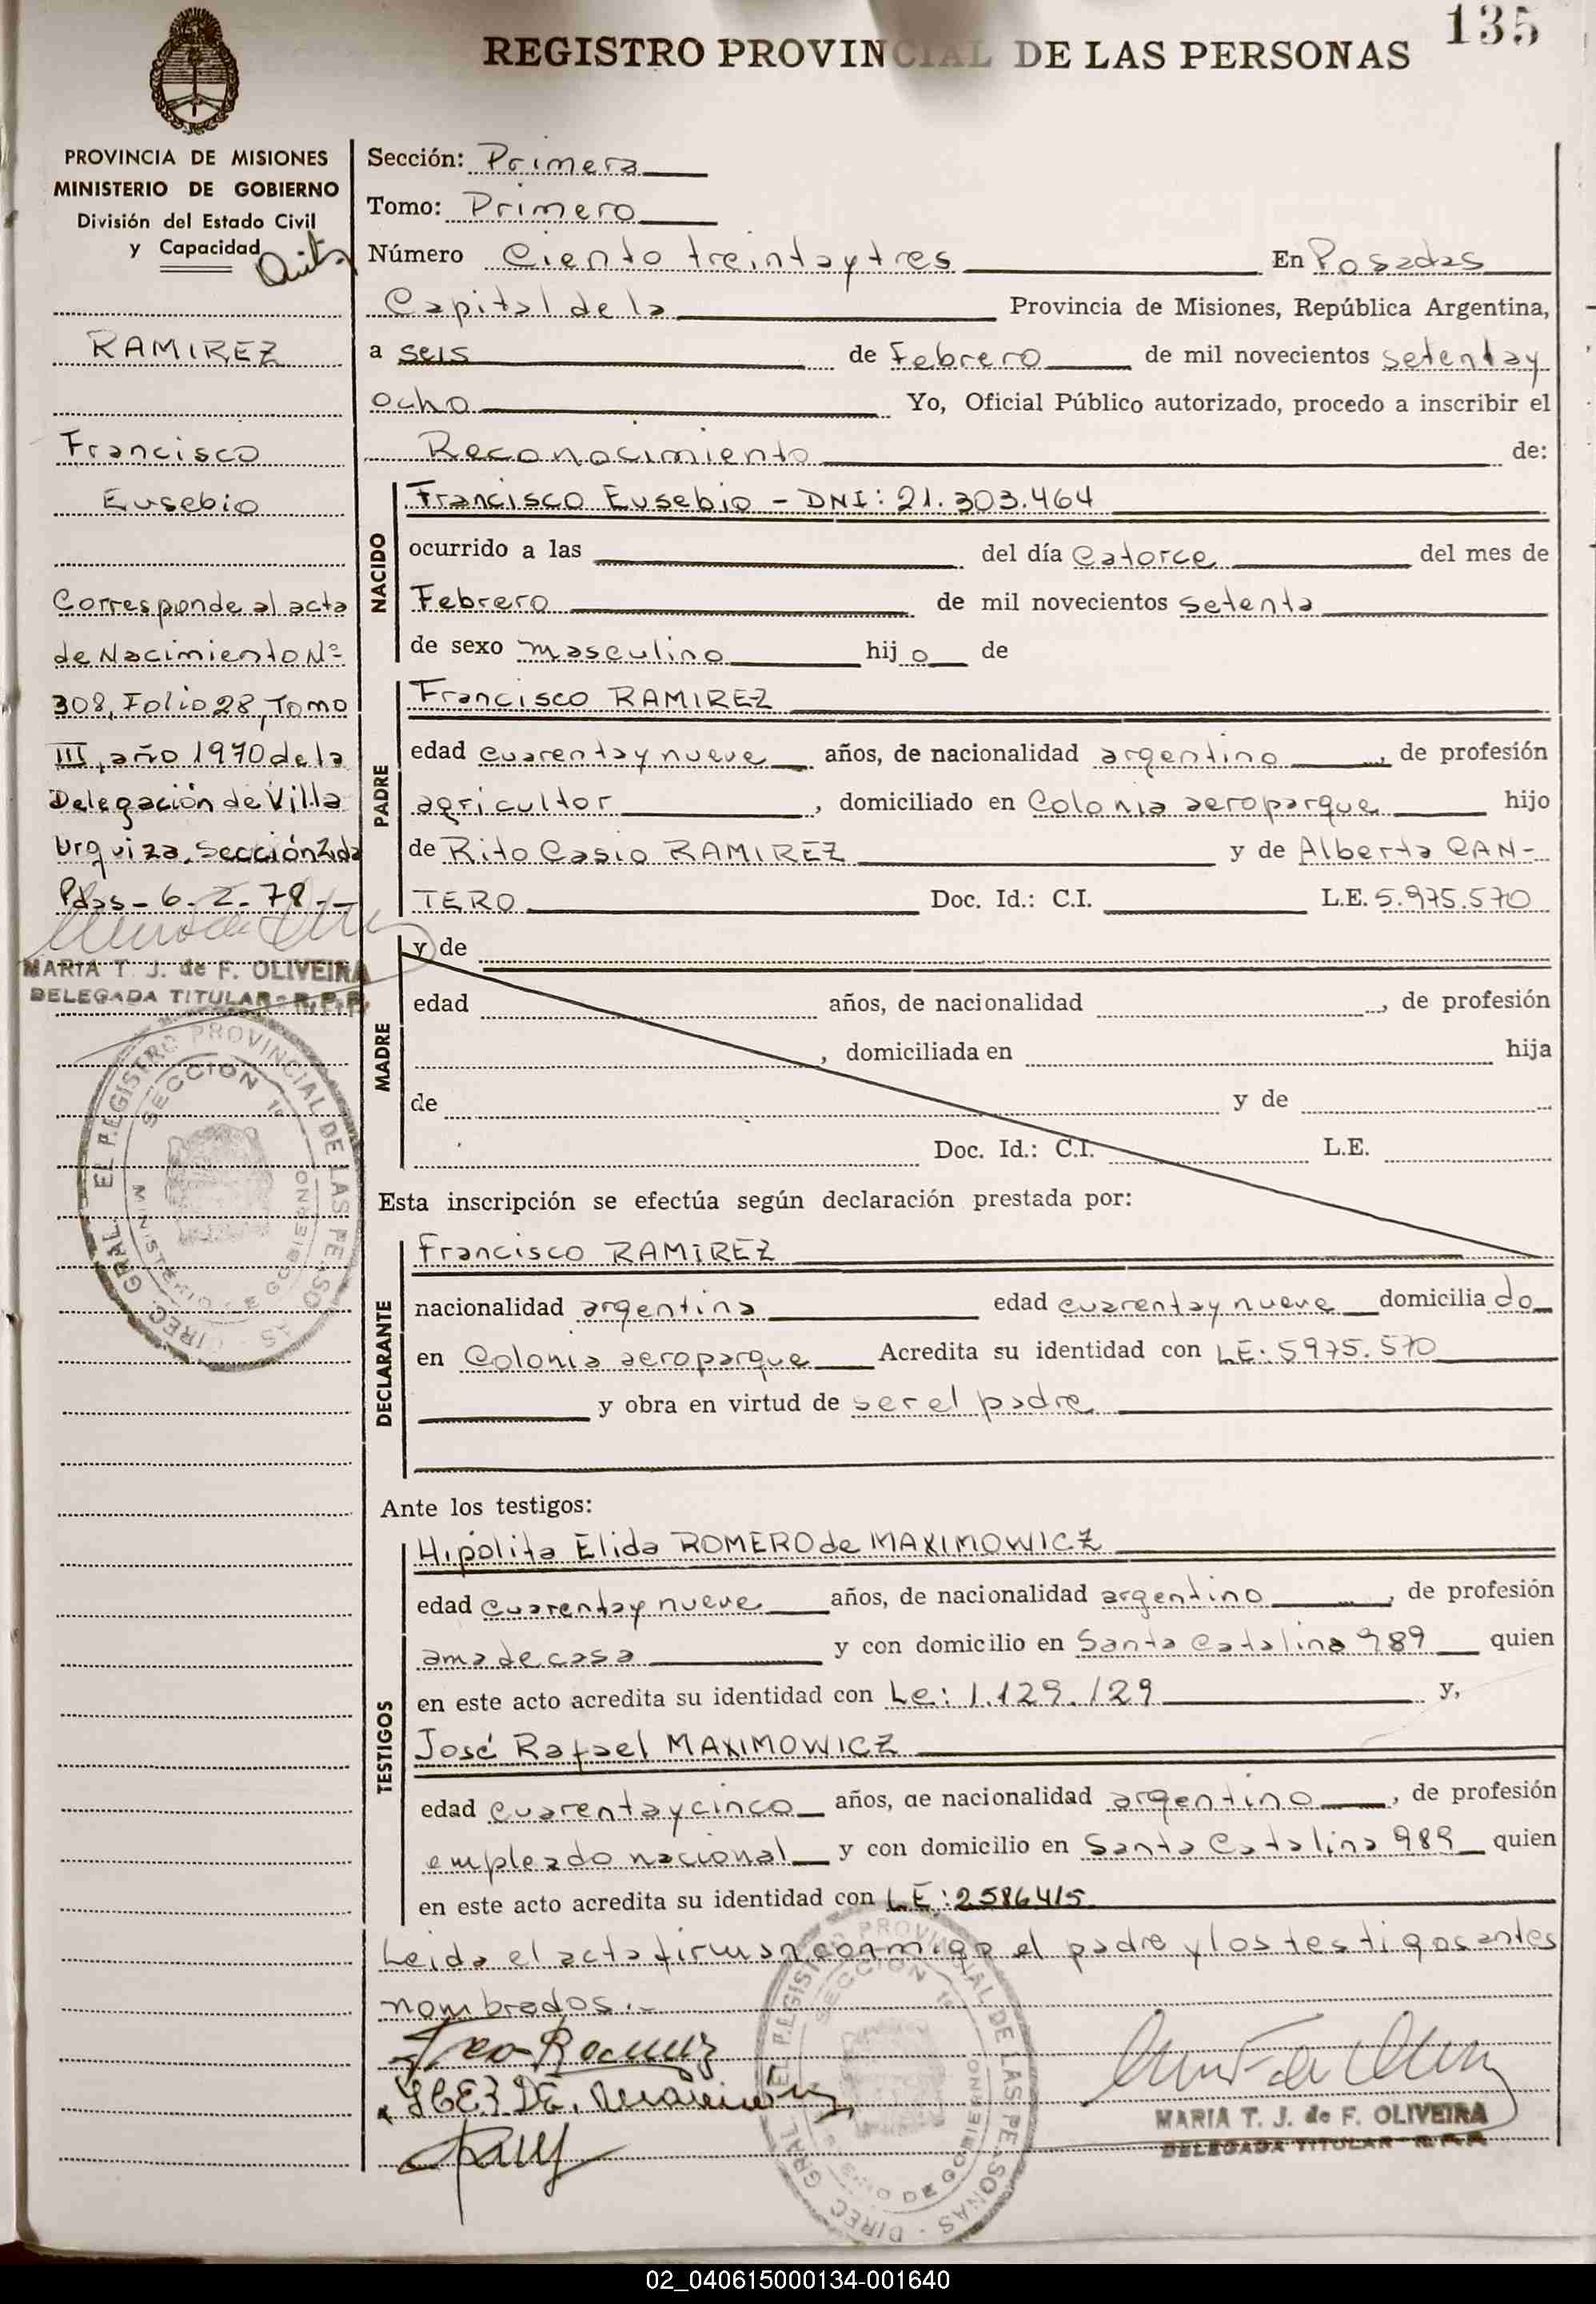 135
REGISTRO PROVINCIAL DE LAS PERSONAS
PROVINCIA DE MISIONES
MINISTERIO DE GOBIERNO
División del Estado Civil
y Capacidad
RAMIREZ
Francisco
Eusebio
Corresponde al acta
de Nacimiento Nº
308, Folio 28, Tomo
III, año 1970 de la
Delegación de Villa
Urquiza. Sección 2ida
Pdas - 6 - 2 - 78 -
MARIA T. J. de F. OLIVEIRA
DELEGADA TITULAR - R.P.P.
DIREC. GRAL. EL REGISTRO PROVINCIAL DE LAS PERSONAS
SECCION 1a
MINISTERIO DE GOBIERNO
Sección: Primera
Tomo: Primero
Número Ciento treinta y tres En Posadas
Capital de la Provincia de Misiones, República Argentina,
a seis de Febrero de mil novecientos setenta y
ocho Yo, Oficial Público autorizado, procedo a inscribir el
Reconocimiento de:
NACIDO
Francisco Eusebio - DNI: 21.303.464
ocurrido a las del día Catorce del mes de
Febrero de mil novecientos setenta
de sexo masculino hijo de
PADRE
Francisco RAMIREZ
edad cuarenta y nueve años, de nacionalidad argentino, de profesión
agricultor, domiciliado en Colonia aeroparque hijo
de Rito Casio RAMIREZ y de Alberta CAN-
TERO Doc. Id.: C.I. L.E. 5.975.570
MADRE
y de
edad años, de nacionalidad , de profesión
, domiciliada en hija
de y de
Doc. Id.: C.I. L.E.
Esta inscripción se efectúa según declaración prestada por:
DECLARANTE
Francisco RAMIREZ
nacionalidad argentina edad cuarenta y nueve domiciliado
en Colonia aeroparque Acredita su identidad con LE: 5975.570
y obra en virtud de ser el padre
Ante los testigos:
TESTIGOS
Hipólita Elida ROMERO de MAXIMOWICZ
edad cuarenta y nueve años, de nacionalidad argentino, de profesión
ama de casa y con domicilio en Santa Catalina 989 quien
en este acto acredita su identidad con Le: 1.129.129 y,
José Rafael MAXIMOWICZ
edad cuarenta y cinco años, de nacionalidad argentino, de profesión
empleado nacional y con domicilio en Santa Catalina 989 quien
en este acto acredita su identidad con LE: 2586415
Leida el acta firman conmigo el padre y los testigos antes
nombrados.-
Fco Ramirez
DIREC. GRAL. EL REGISTRO PROVINCIAL DE LAS PERSONAS
SECCION 1a
MINISTERIO DE GOBIERNO
MARIA T. J. de F. OLIVEIRA
DELEGADA TITULAR - R.P.P.
02_040615000134-001640